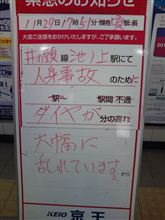 緊急のお知らせ
11月29日17時51分現在
大変ご迷惑をおかけいたしますが、ご了承願います。
井の頭線池ノ上駅にて
人身事故のために
駅～駅間 不通
ダイヤが 分の遅れ
大幅に
乱れています。
KEIO 京王